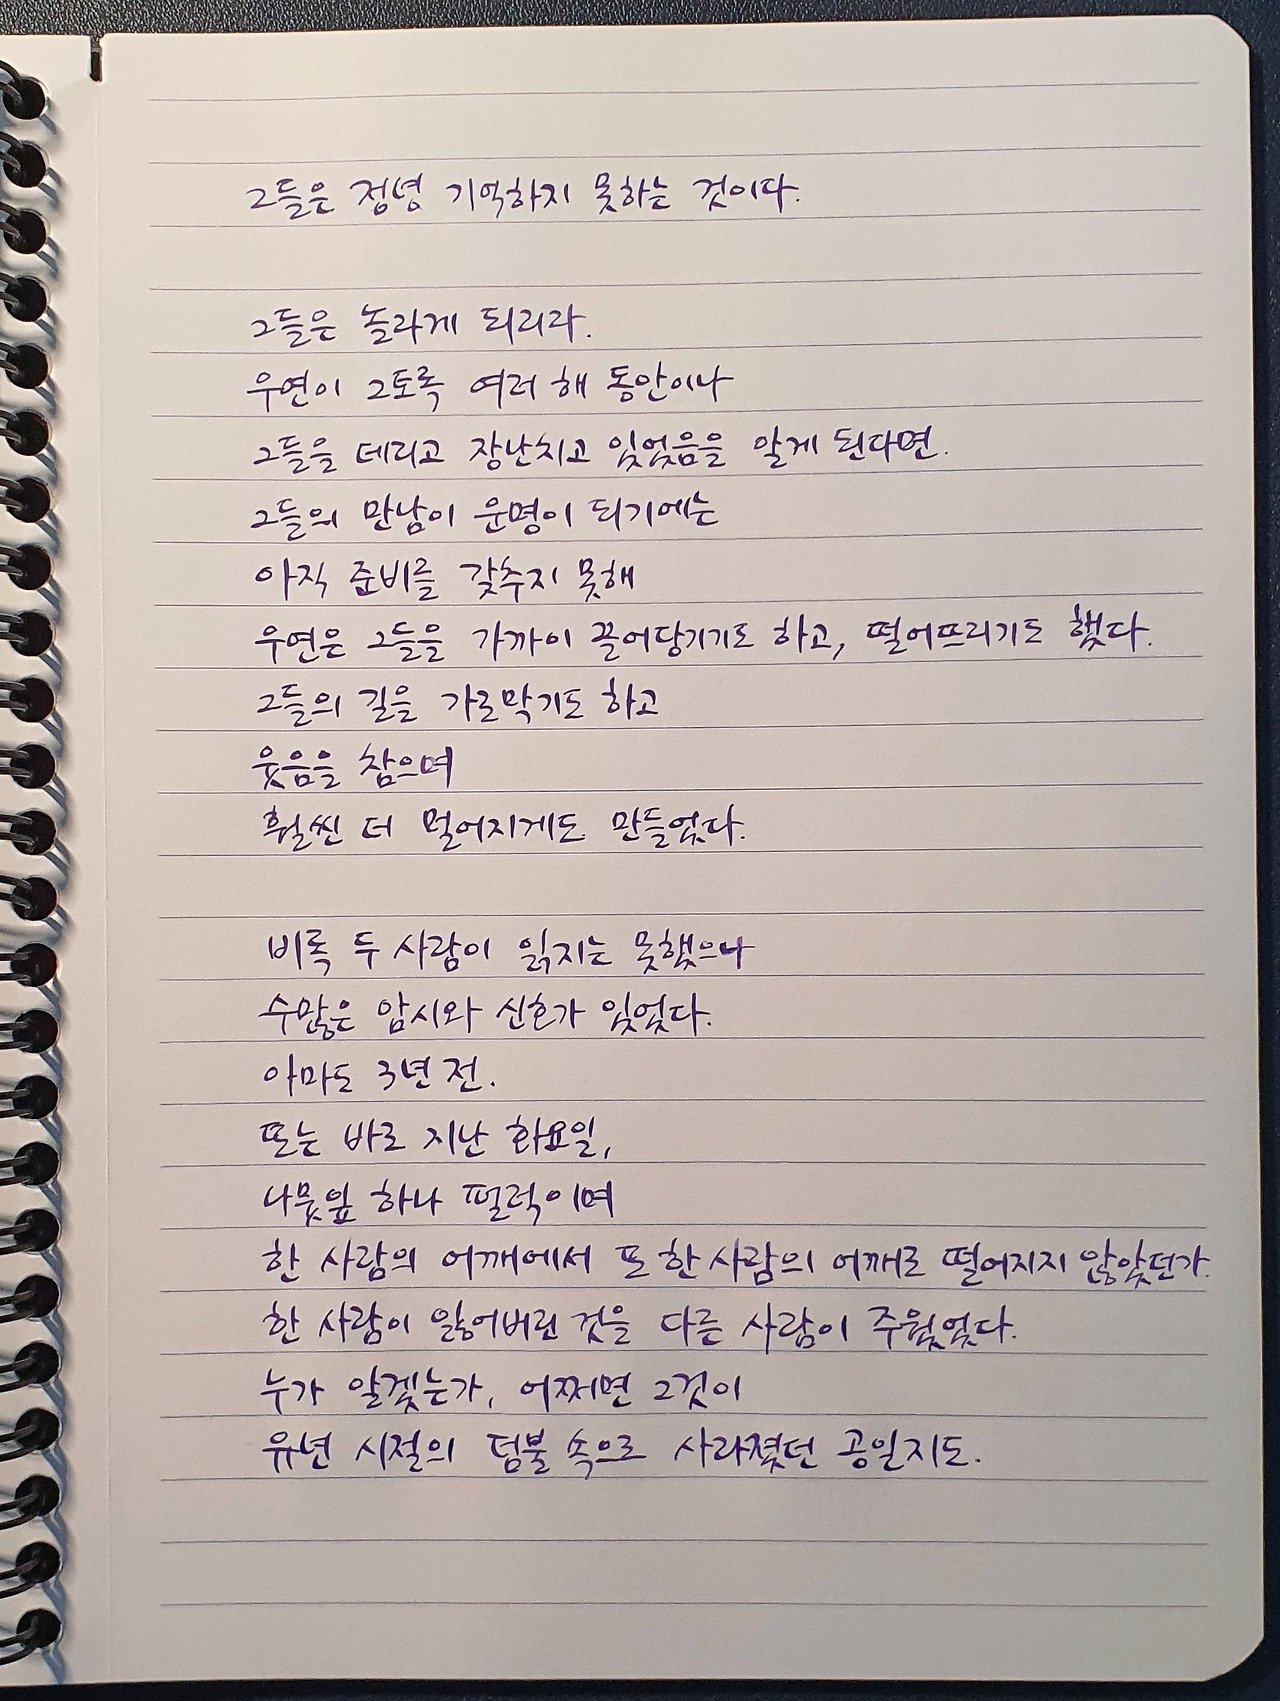 그들은 정녕 기억하지 못하는 것이다.
그들은 놀라게 되리라.
우연이 그토록 여러 해 동안이나
그들을 데리고 장난치고 있었음을 알게 된다면.
그들의 만남이 운명이 되기에는
아직 준비를 갖추지 못해
우연은 그들을 가까이 끌어당기기도 하고, 떨어뜨리기도 했다.
그들의 길을 가로막기도 하고
웃음을 참으며
훨씬 더 멀어지게도 만들었다.
비록 두 사람이 읽지는 못했으나
수많은 암시와 신호가 있었다.
아마도 3년 전.
또는 바로 지난 화요일,
나뭇잎 하나 펄럭이며
한 사람의 어깨에서 또 한 사람의 어깨로 떨어지지 않았던가.
한 사람이 잃어버린 것을 다른 사람이 주웠었다.
누가 알겠는가, 어쩌면 그것이
유년 시절의 덤불 속으로 사라졌던 공일지도.